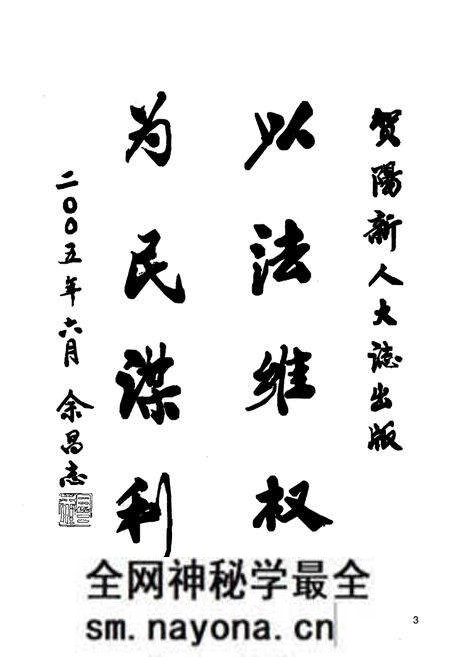 贺陽新人大誌出版
以法维权
为民谋利
二00五年六月 余昌志
全网神秘学最全
sm.nayona.cn
3